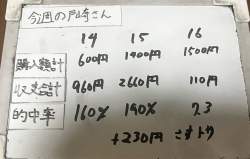 今週の戸崎さん
14 15 16
購入額計 600円 1400円 1500円
収支合計 960円 2660円 110円
的中率 160% 190% 23
+230円